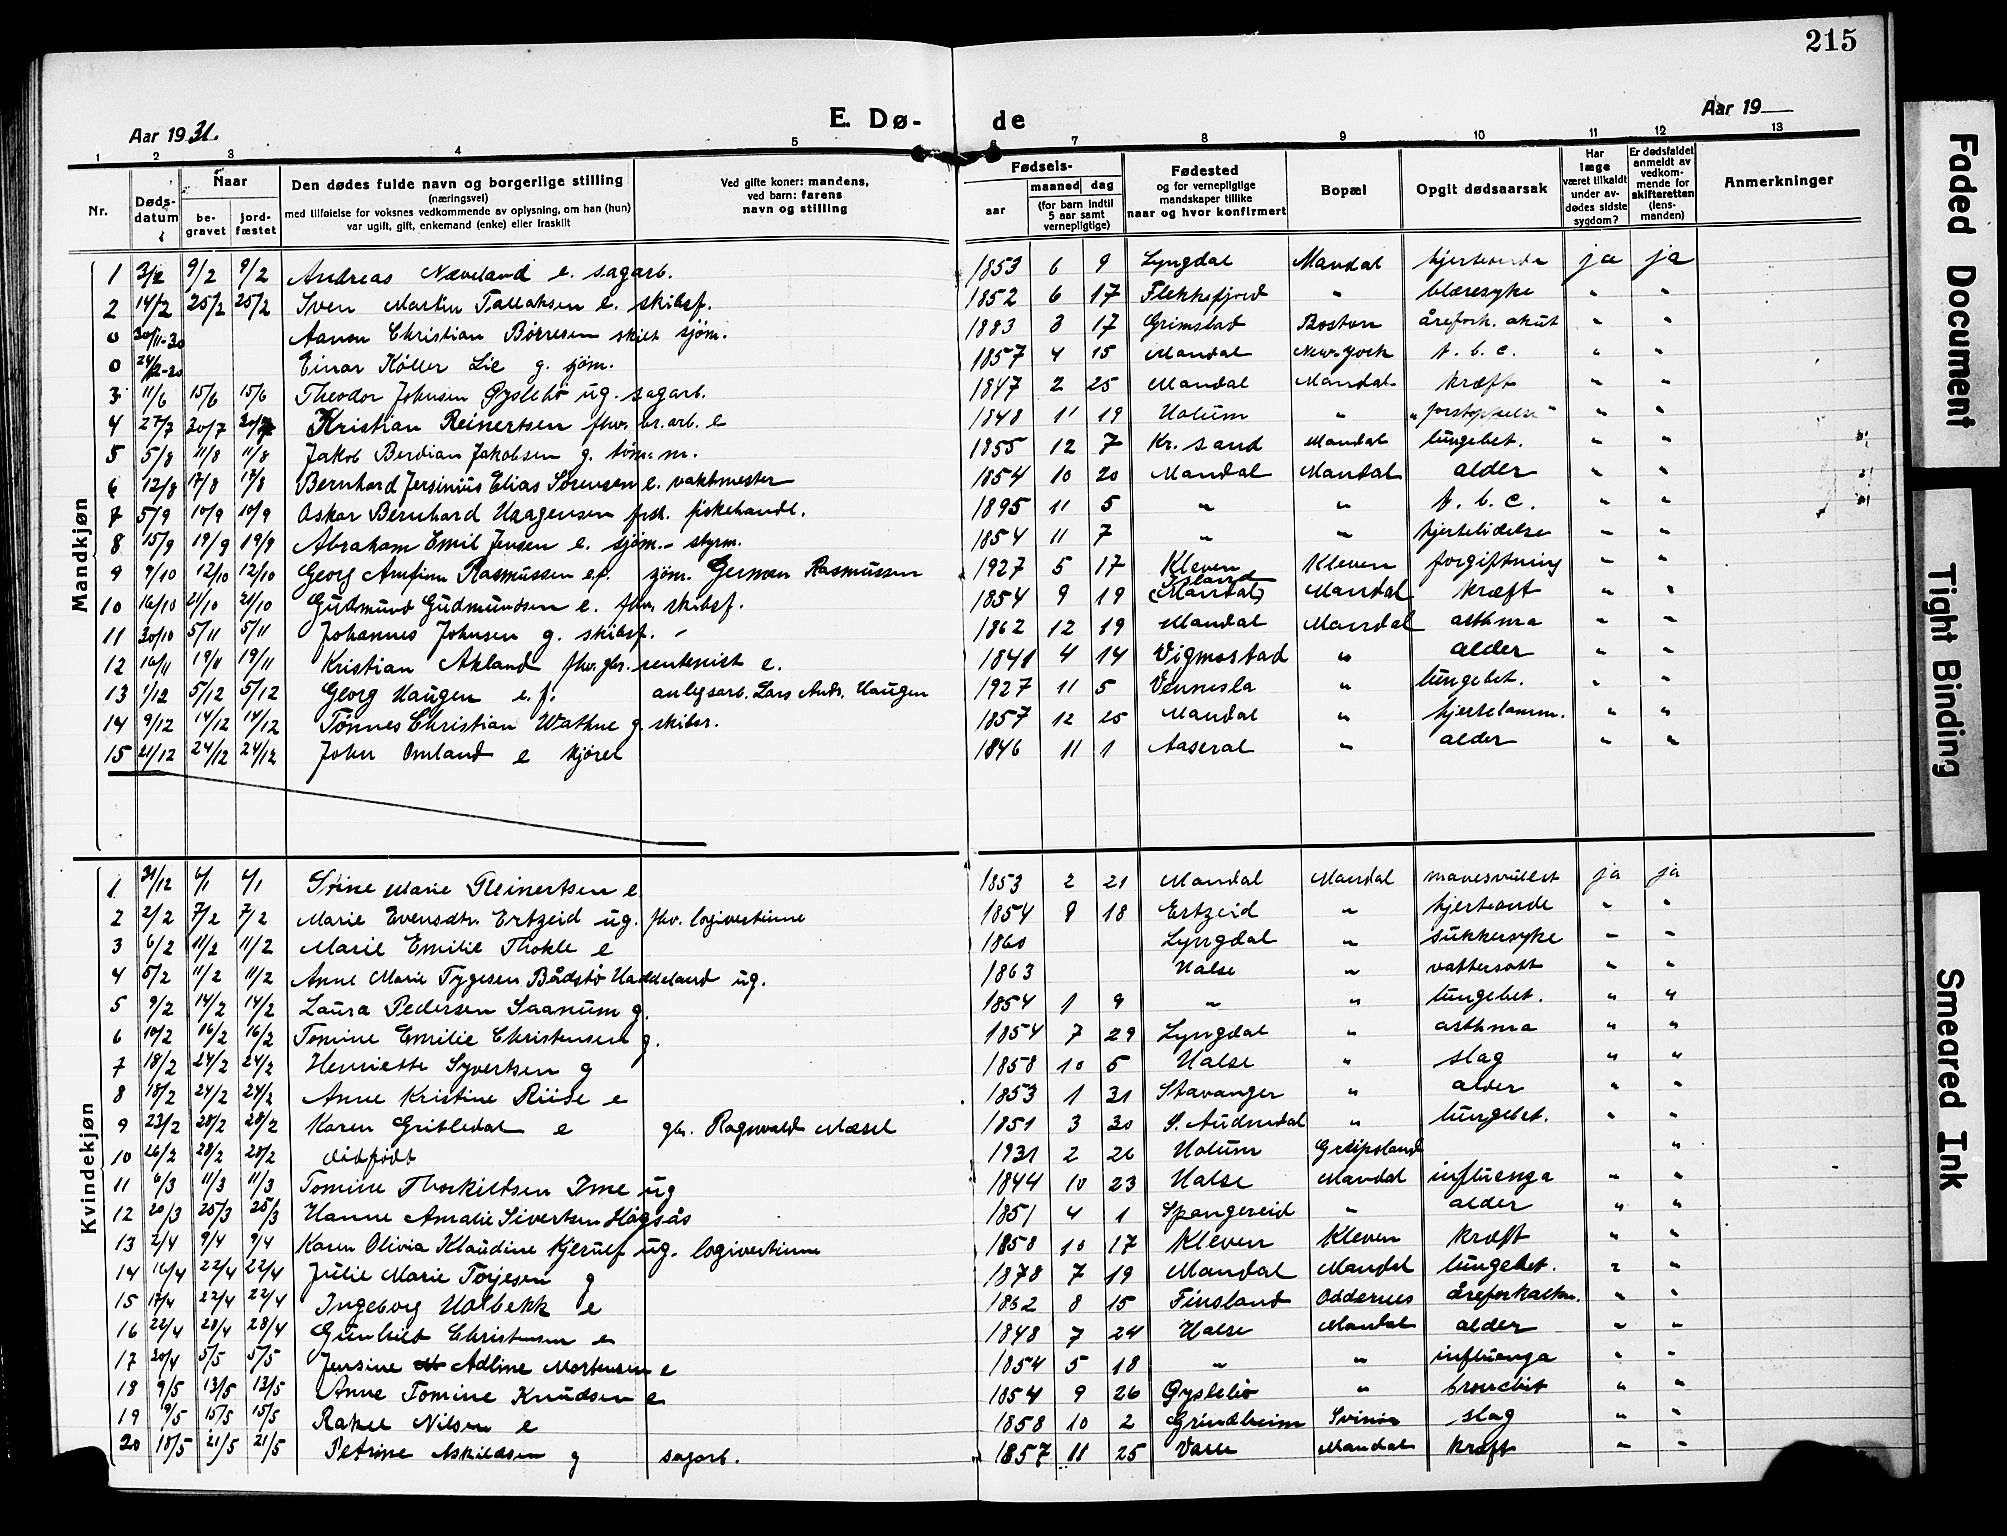 215
Aar 1931.
E. Dø-
de
Aar 19
1 2 3 4 5 6 7 8 9 10 11 12 13
Nr.
Døds-datum
Naar
be-gravet
jord-fæstet
Den dødes fulde navn og borgerlige stilling
(næringsvei)
med tilføielse for voksnes vedkommende av oplysning, om han (hun)
var ugift, gift, enkemand (enke) eller fraskilt
Ved gifte koner: mandens,
ved barn: farens
navn og stilling
Fødsels-
aar
maaned dag
(for barn indtil
5 aar samt
vernepligtige)
Fødested
og for vernepligtige
mandskaper tillike
naar og hvor konfirmert
Bopæl
Opgit dødsaarsak
Har
læge
været tilkaldt
under av-
dødes sidste
sygdom?
Er dødsfaldet
anmeldt av
vedkom-
mende for
skifteretten
(lens-
manden)
Anmerkninger
Mandkjøn
1 3/2 9/2 9/2 Andreas Næveland e. sagarb. 1853 6 9 Lyngdal Mandal hjerteonde ja ja
2 14/2 25/2 25/2 Sven Martin Tallaksen e. skibsf. 1852 6 17 Flekkefjord " blæresyke " "
0 30/11-30 Aanon Christian Børresen skilt sjøm. 1883 3 17 Grimstad Boston årefork. akut " "
0 24/12-20 Einar Køller Lie g. sjøm. 1857 4 15 Mandal New York t. b. c. " "
3 11/6 15/6 15/6 Theodor Johnsen Øyslebø ug. sagarb. 1847 2 25 Mandal Mandal kræft " "
4 27/7 30/7 30/7 Kristian Reinertsen fhv. br.arb. e 1848 11 19 Holum " "forstoppelse" " "
5 5/8 11/8 11/8 Jakob Berdian Jakobsen g. tøm.m. 1855 12 7 Kr. sand Mandal lungebet. " "
6 12/8 17/8 17/8 Bernhard Jersinius Elias Sørensen e. vaktmester 1854 10 20 Mandal Mandal alder " "
7 5/9 10/9 10/9 Oskar Bernhard Haagensen frsk. fiskehandl. 1895 11 5 " " t. b. c. " "
8 15/9 19/9 19/9 Abraham Emil Jensen e. sjøm. - styrm. 1854 11 7 " " hjertelidelse " "
9 9/10 12/10 12/10 Georg Arnfinn Rasmussen e.f. sjøm. German Rasmussen 1927 5 17 Kleven Kleven forgiftning " "
10 16/10 21/10 21/10 Gudmund Gudmundsen e. fhv. skibsf. 1854 9 19 Island (Mandal) Mandal kræft " "
11 30/10 5/11 5/11 Johannes Johnsen g. skibsf. - 1862 12 19 Mandal Mandal asthma " "
12 16/11 19/11 19/11 Kristian Akland fhv. gbr. rentenist e. 1841 4 14 Vigmostad " alder " "
13 1/12 5/12 5/12 Georg Haugen e.f. anlegsarb. Lars Andr. Haugen 1927 11 5 Vennesla " lungebet. " "
14 9/12 14/12 14/12 Tønnes Christian Wathne g. skibsr. 1857 12 25 Mandal " hjertelamm. " "
15 21/12 24/12 24/12 John Omland e kjørel 1846 11 1 Aaseral " alder " "
Kvindekjøn
1 31/12 6/1 6/1 Stine Marie Reinertsen e 1853 2 21 Mandal Mandal mavesvullst ja ja
2 2/2 7/2 7/2 Marie Evensdtr. Ertzeid ug. fhv. logivertinne 1854 9 18 Ertzeid " hjerteonde " "
3 6/2 11/2 11/2 Marie Emilie Thokle e 1860 Lyngdal " sukkersyke " "
4 5/2 11/2 11/2 Anne Marie Tygesen Bådstø Haddeland ug. 1863 Halse " vattersott " "
5 9/2 14/2 14/2 Laura Pedersen Saanum g. 1854 1 9 " " lungebet. " "
6 10/2 16/2 16/2 Tomine Emilie Christensen g. 1854 7 29 Lyngdal " asthma " "
7 18/2 24/2 24/2 Henriette Syvertsen g 1858 10 5 Halse " slag " "
8 18/2 24/2 24/2 Anne Kristine Riise e 1853 1 31 Stavanger " alder " "
9 23/2 28/2 28/2 Karen Gribledal e gbr. Ragnvald Mæsel 1851 3 30 S. Audnedal " lungebet. " "
10 26/2 28/2 28/2 dødfødt 1931 2 26 Holum Greipsland "
11 6/3 11/3 11/3 Tomine Thorkildsen Ime ug 1844 10 23 Halse Mandal influenza " "
12 20/3 25/3 25/3 Hanne Amalie Sivertsen Høgsås 1851 4 1 Spangereid " alder " "
13 2/4 9/4 9/4 Karen Olivia Klaudine Kjerulf ug. logivertinne 1858 10 17 Kleven Kleven kræft " "
14 16/4 22/4 22/4 Julie Marie Torjesen g 1878 7 19 Mandal Mandal lungebet. " "
15 17/4 22/4 22/4 Ingeborg Holbekk e 1862 8 15 Finsland Oddernes åreforkalkn. " "
16 22/4 28/4 28/4 Gunhild Christensen e 1848 7 24 Halse Mandal alder " "
17 30/4 5/5 5/5 Jensine Adline Mortensen e 1854 5 18 " " influenza " "
18 9/5 13/5 13/5 Anne Tomine Knudsen e 1854 9 26 Øyslebø " bronchit " "
19 9/5 15/5 15/5 Rakel Nilsen e 1858 10 2 Grindheim Svinør slag " "
20 18/5 21/5 21/5 Petrine Askildsen g sagarb. 1857 11 25 Valle Mandal kræft " "
Faded Document
Tight Binding
Smeared Ink